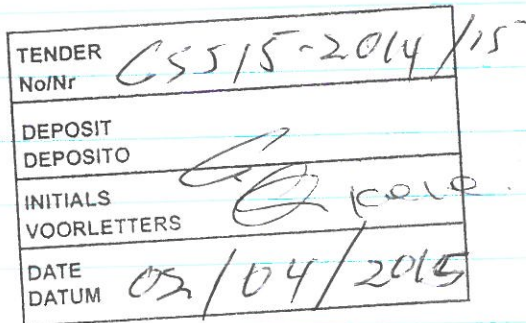 TENDER
No/Nr CS515-2014/15
DEPOSIT
DEPOSITO
INITIALS
VOORLETTERS
DATE
DATUM 02/04/2015